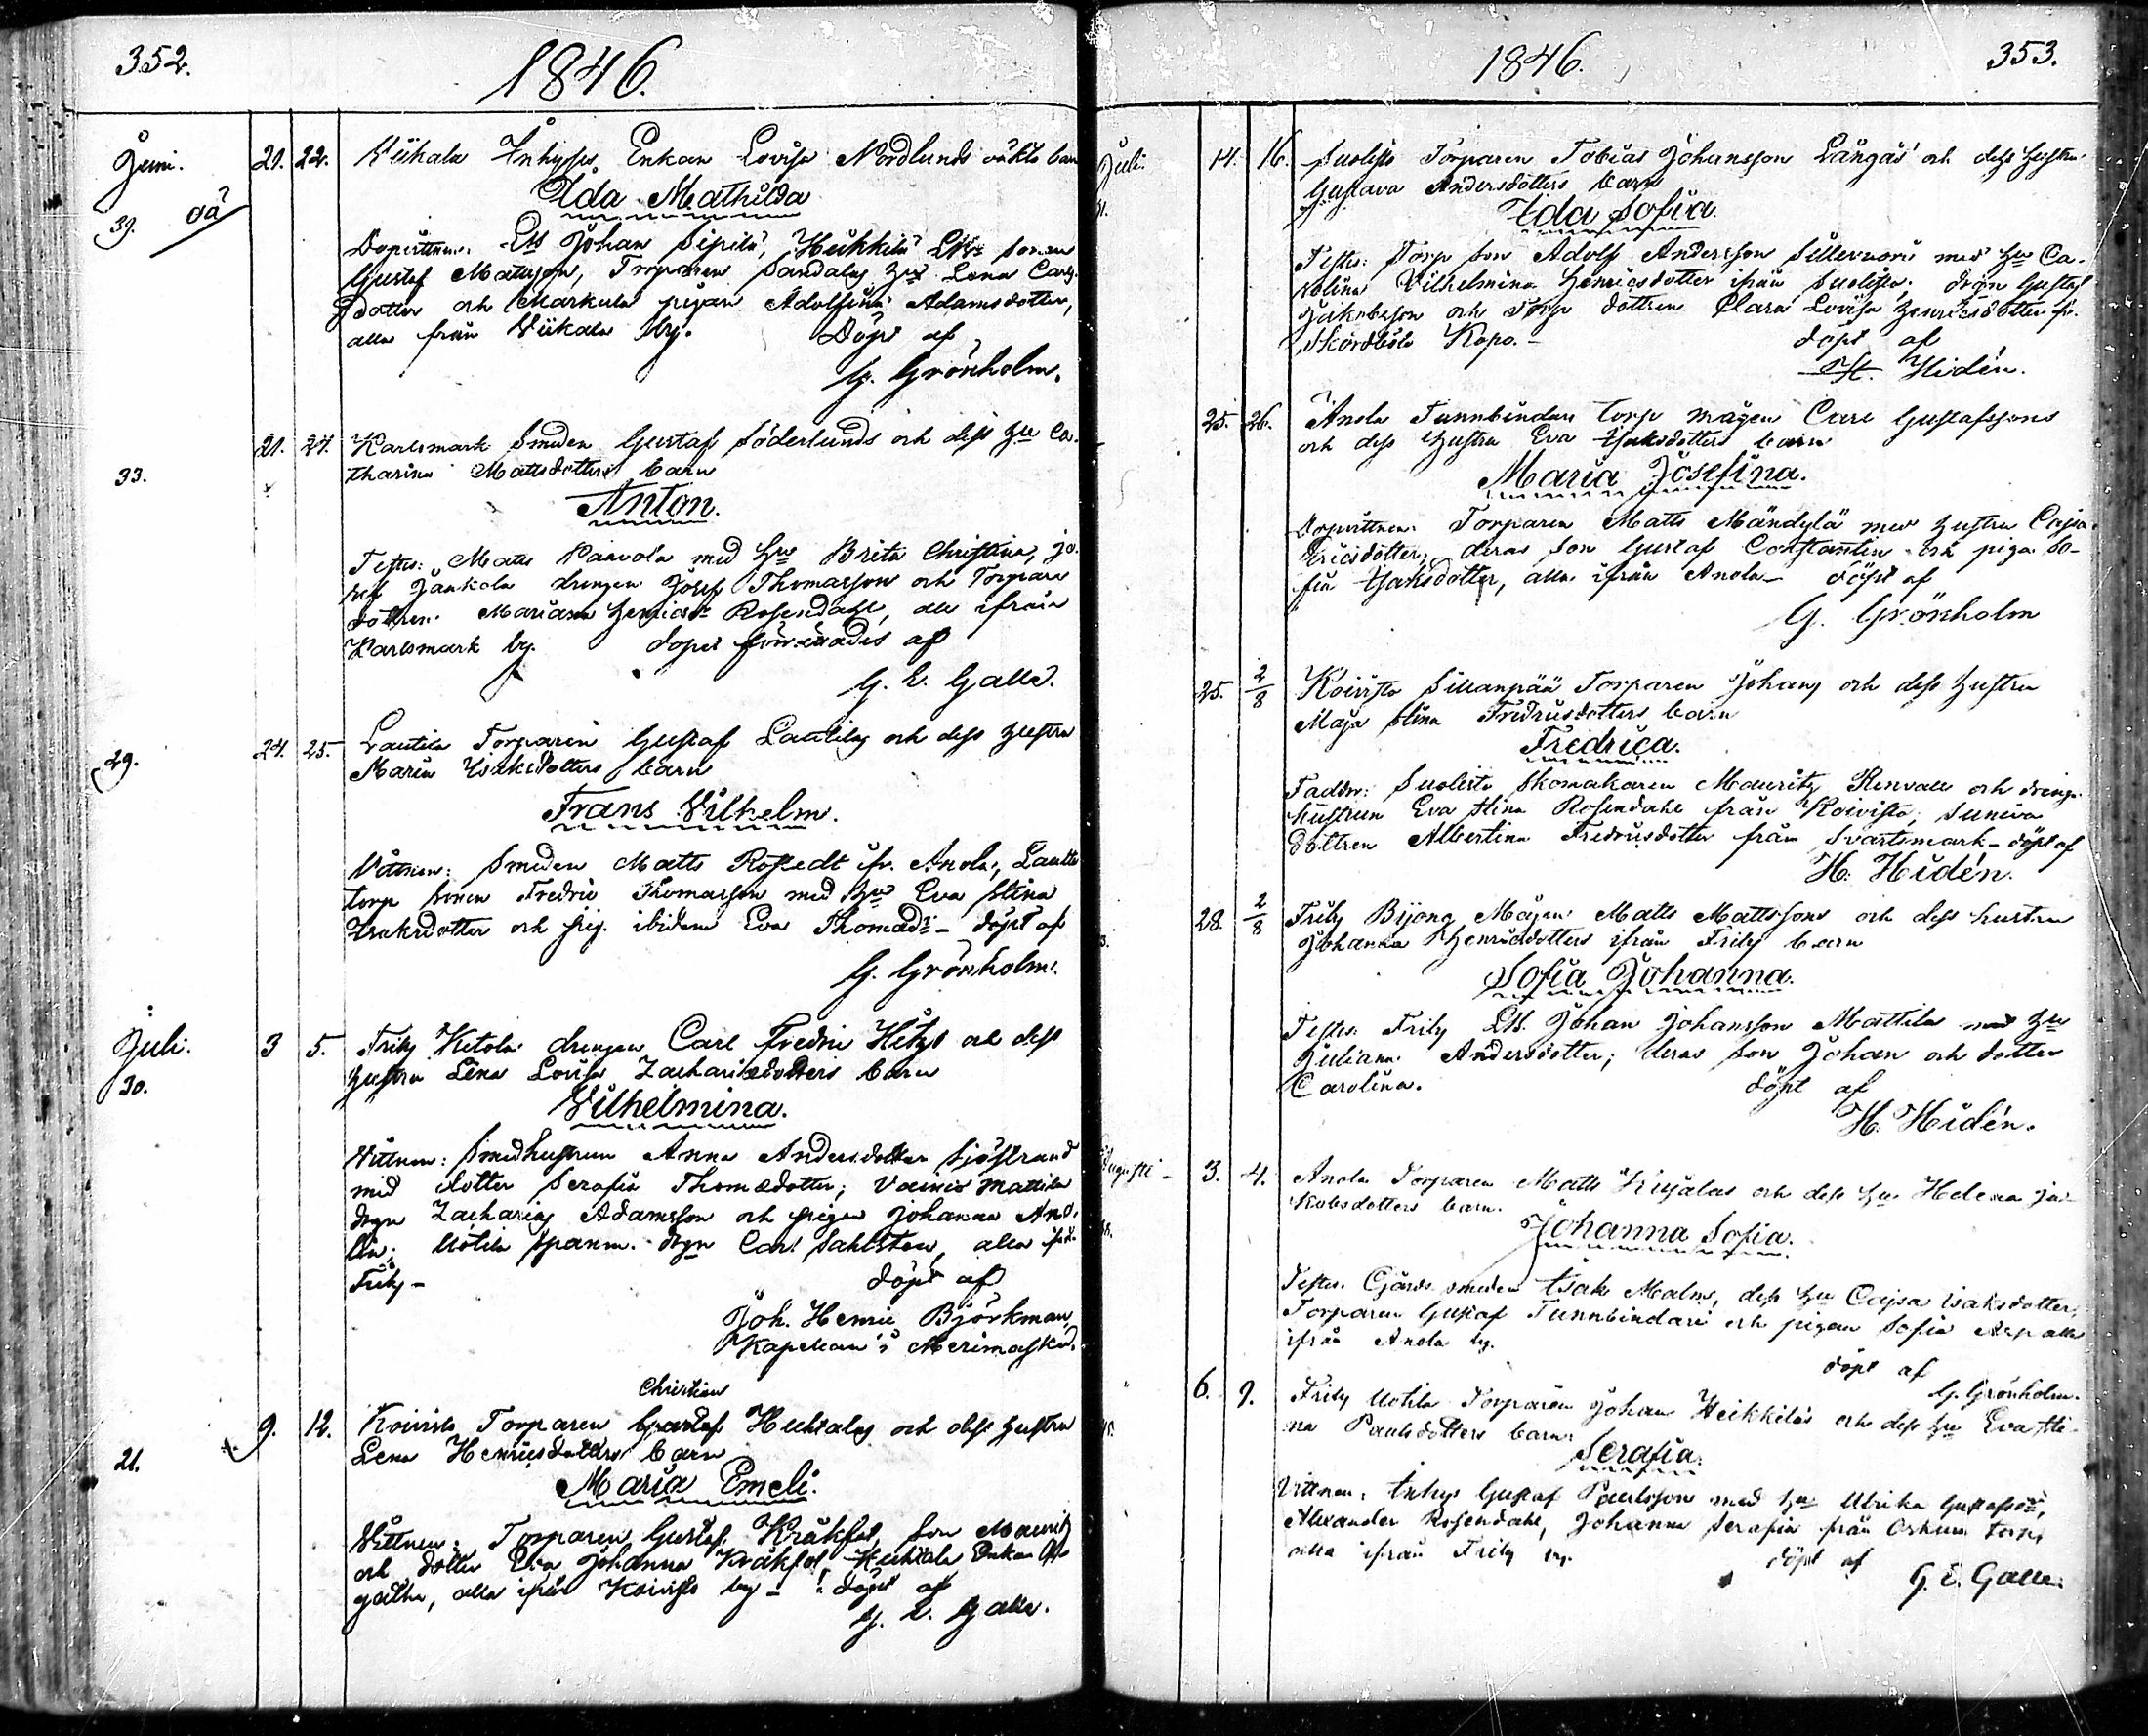 352.
1846.
Juni. 21. 22. Viikala Inhyses Enkan Lovisa Nordlunds oäkta barn
Ida Mathilda
39. oä
Dopvittnen: Johan Sipilä, Heikkilä sonen
Gustaf Mattsson, Torparen Sandalas Hu Lena Carls
dotter och Markula pigan Adolfina Adamsdotter,
alla från Viikala by. Döpt af
G. Grönholm.
21. 24. Karlsmark Smeden Gustaf Söderlunds och dess Hu Ca-
33. tharina Mattsdotters barn
Anton.
Testes: Matts Paavola med Hu Brita Christina, Jo-
sef Jaakola drengen Josef Thomasson och Torpare
dottren Mariana Henricsdr Rosendahl, alla ifrån
Karlsmark by. dopet förrättades af
G. E. Galle.
29. 24. 25. Lautila Torparen Gustaf Lautilas och dess Hustru
Maria Isaksdotters barn
Frans Vilhelm.
Vittnen: Smeden Matts Rostedt fr. Anola, Lautila
torp sonen Fredric Thomasson med Hu Eva Stina
Isaksdotter och pig. ibidem Eva Thomasdr - döpt af
G. Grönholm.
Juli. 3 5. Friby Ketola drengen Carl Fredric och dess
30. Hustru Lena Lovisa Zachariædotters barn
Vilhelmina.
Vittnen: Smedhustrun Anna Andersdotter Sjöstrand
med dotter Serafia Thomædotter; Mattila
drgn Zacharias Adamsson och pigan Johanna
Uotila drgn Carl Sahlsten, alla ifrån
Friby - döpt af
Joh. Henric Björkman,
Kapellan i Merimasku.
Christian
9. 12. Koivisto Torparen Gustaf Huhtalas och dess Hustru
21. Lena Henricsdotters barn
Maria Emeli.
Vittnen: Torparen Gustaf Kråkfot, son Mauritz
och dotter Eva Johanna Kråkfot, Huhtala Enkan A-
gatha, alla ifrån Koivisto by - döpt af
G. E. Galle.
1846.
353.
Juli. 14. 16. Suolisto Torparen Tobias Johansson Långås och dess Hustru
Gustava Andersdotters barn
Ida Sofia.
Testes: Torp Son Adolf Andersson Sillervuori med Hu Ca-
rolina Vilhelmina Henricsdotter ifrån Suolisto; drgn Gustaf
Jakobsson och Torp dottren Clara Lovisa Henricsdotter fr.
Kopo. - döpt af
H. Hidén.
25. 26. Anola Tunnbindare torp mågen Carl Gustafssons
och dess Hustru Eva Isaksdotters barn
Maria Josefina.
Dopvittnen: Torparen Matts Mändylä med Hustru Cajsa
Ericsdotter; deras Son Gustaf Constantin och piga So-
fia Isaksdotter, alla ifrån Anola - döpt af
G. Grönholm
25. 2/8 Koivisto Sillanpää Torparen Johans och dess Hustru
Maja Stina Fredricsdotters barn
Fredrica.
Faddrar: Suolisto Skomakaren Mauritz Renvall och drengs
hustrun Eva Stina Rosendahl från Koivisto;
dottren Albertina Fredricsdotter från Svartsmark - döpt af
H. Hidén.
28. 2/8 Friby Mågen Matts Mattssons och dess hustru
Johanna Henricsdotters ifrån Friby barn
Sofia Johanna.
Testes: Friby Johan Johansson Mattila med Hu
Juliana Andersdotter; deras Son Johan och dotter
Carolina. döpt af
H. Hidén.
Augusti - 3. 4. Anola Torparen Matts Kujalas och dess Hu Helena Ja-
kobsdotters barn.
Johanna Sofia.
Testes: Gårds smeden Isak Malm, dess Hu Cajsa Isaksdotter,
Torparen Gustaf Tunnbindare och pigan Sofia alla
ifrån Anola by. döpt af
G. Grönholm.
6. 9. Friby Uotila Torparen Johan Heikkiläs och dess Hu Eva Sti-
na Paulsdotters barn
Serafia.
Vittnen: Inhys Gustaf Paulsson med Hu Ulrika Gustafsdr,
Alexander Rosendahl, Johanna Serafia från torp,
alla ifrån Friby by. döpt af
G. E. Galle.